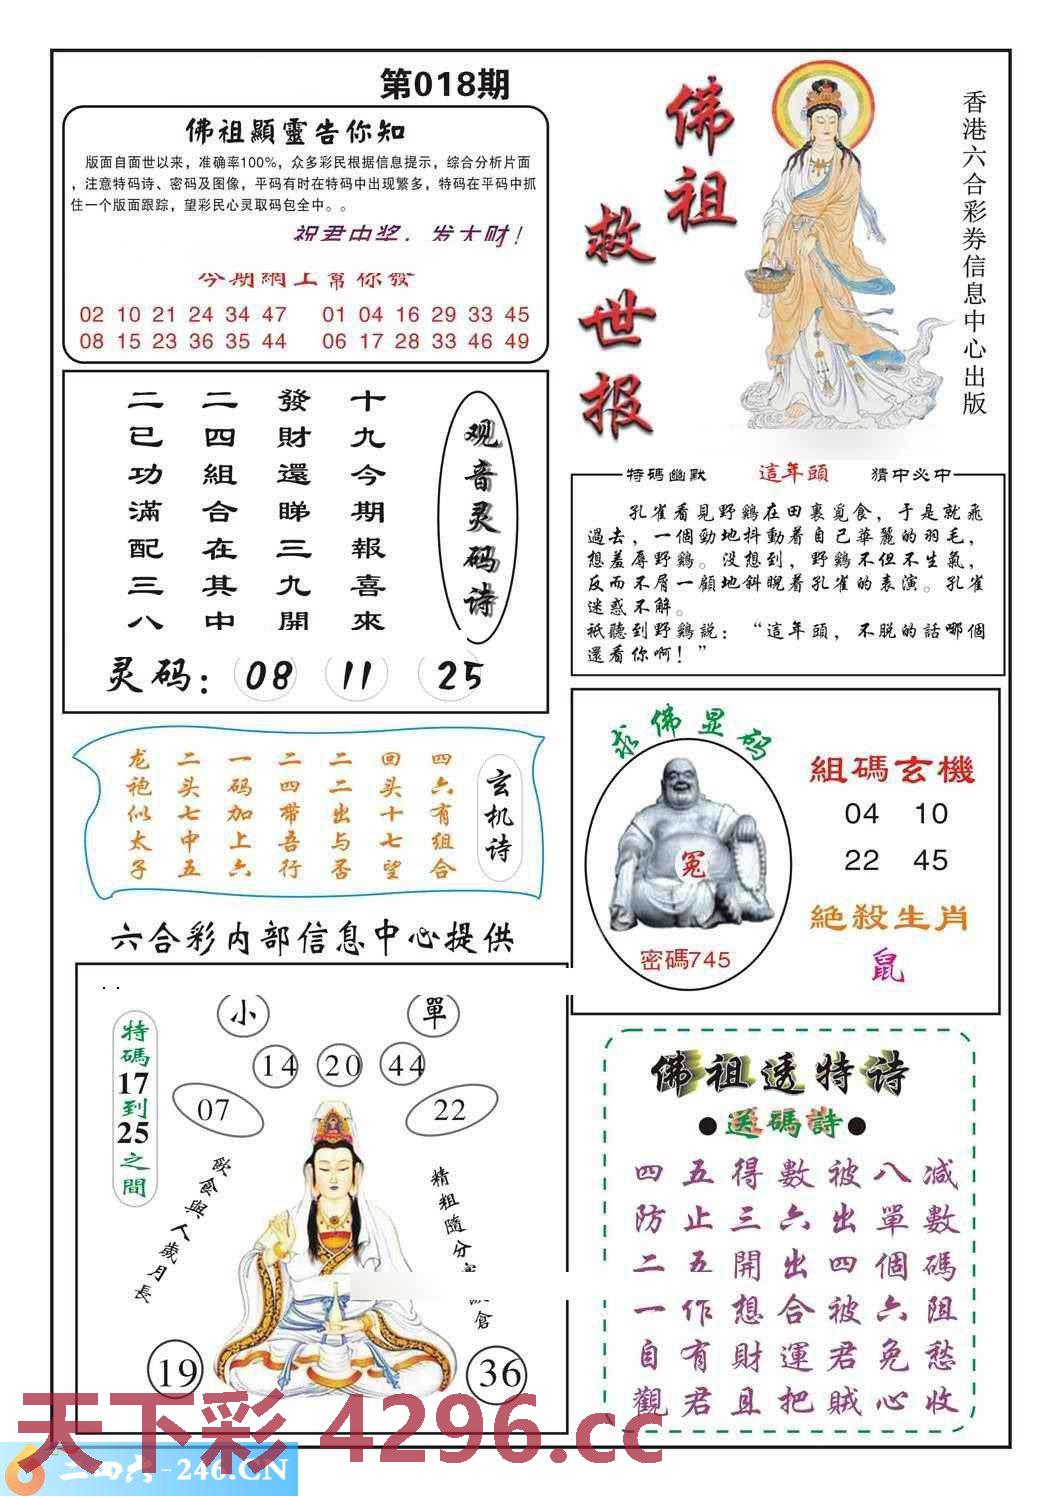 第018期
佛祖顯靈告你知
版面自面世以来，准确率100%，众多彩民根据信息提示，综合分析片面
，注意特码诗、密码及图像，平码有时在特码中出现繁多，特码在平码中抓
住一个版面跟踪，望彩民心灵取码包全中。。
祝君中奖，发大财！
今期網上幫你發
02 10 21 24 34 47 01 04 16 29 33 45
08 15 23 36 35 44 06 17 28 33 46 49
佛祖
救世报
香港六合彩券信息中心出版
观音灵码诗
十九今期報喜來
發財還睇三九開
二四組合在其中
二已功滿配三八
灵码： 08 11 25
特碼幽默 這年頭 猜中必中
孔雀看見野鷄在田裏覓食，于是就飛
過去，一個勁地抖動着自己華麗的羽毛，
想羞辱野鷄。没想到，野鷄不但不生氣，
反而不屑一顧地斜睨着孔雀的表演。孔雀
迷惑不解。
祇聽到野鷄説：“這年頭，不脱的話哪個
還看你啊！”
玄机诗
四六有组合
回头十七望
二二出与否
二四带吾行
一码加上六
二头七中五
龙袍似太子
求佛显码
冤
密碼745
組碼玄機
04 10
22 45
絕殺生肖
鼠
六合彩内部信息中心提供
特碼17到25之間
小 單
14 20 44
07 22
飲食與人歲月長
精粗隨分
倉
19 36
佛祖透特诗
●送碼詩●
四五得數被八减
防止三六出單數
二五開出四個碼
一作想合被六阻
自有財運君免愁
觀君且把賊心收
天下彩 4296.cc
二四六-246.CN